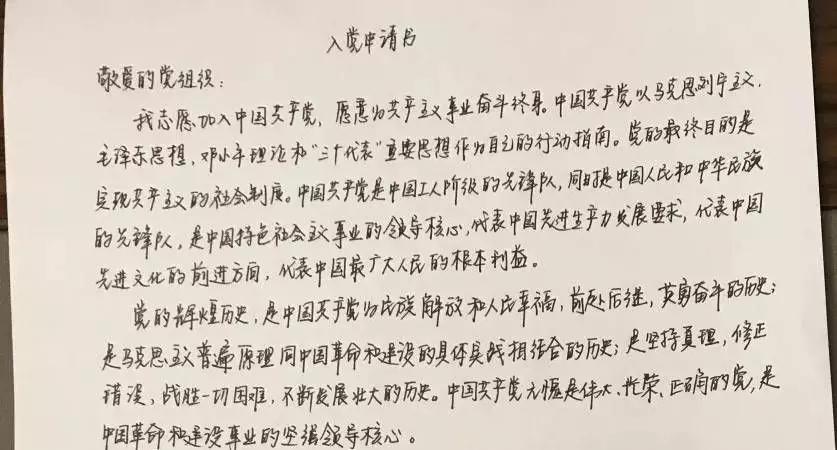 入党申请书
敬爱的党组织：
我志愿加入中国共产党，愿意为共产主义事业奋斗终身。中国共产党以马克思列宁主义、
毛泽东思想，邓小平理论和“三个代表”重要思想作为自己的行动指南。党的最终目的是
实现共产主义的社会制度。中国共产党是中国工人阶级的先锋队，同时是中国人民和中华民族
的先锋队，是中国特色社会主义事业的领导核心，代表中国先进生产力发展要求，代表中国
先进文化的前进方向，代表中国最广大人民的根本利益。
党的辉煌历史，是中国共产党为民族解放和人民幸福，前赴后继，英勇奋斗的历史；
是马克思主义普遍原理同中国革命和建设的具体实践相结合的历史；是坚持真理，修正
错误，战胜一切困难，不断发展壮大的历史。中国共产党无愧是伟大、光荣、正确的党，是
中国革命和建设事业的坚强领导核心。